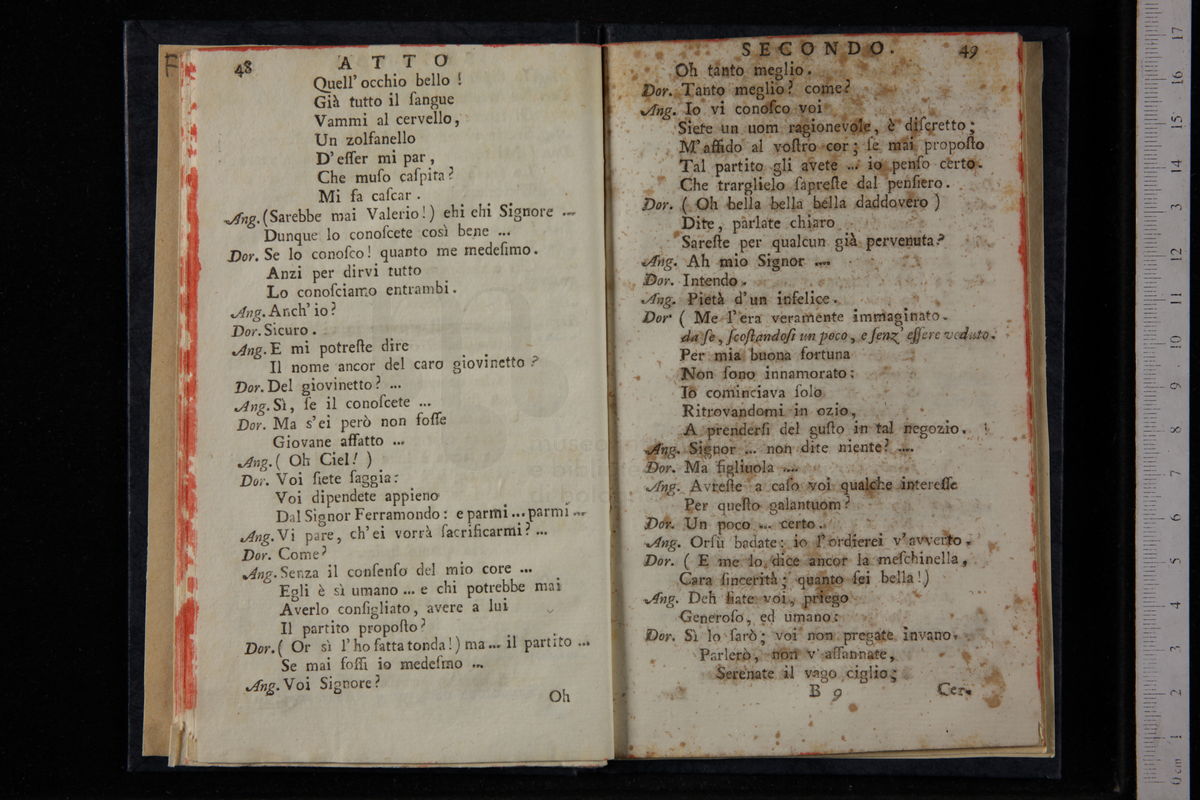 F
48 ATTO
Quell' occhio bello !
Già tutto il ſangue
Vammi al cervello,
Un zolfanello
D' eſſer mi par ,
Che muſo caſpita ?
Mi fa caſcar .
Ang. (Sarebbe mai Valerio!) ehi chi Signore ...
Dunque lo conoſcete così bene ...
Dor. Se lo conoſco! quanto me medeſimo .
Anzi per dirvi tutto
Lo conoſciamo entrambi .
Ang. Anch' io ?
Dor. Sicuro .
Ang. E mi potreſte dire
Il nome ancor del caro giovinetto ?
Dor. Del giovinetto ? ...
Ang. Sì, ſe il conoſcete ...
Dor. Ma s' ei però non foſſe
Giovane affatto ...
Ang. ( Oh Ciel! )
Dor. Voi ſiete ſaggia :
Voi dipendete appieno
Dal Signor Ferramondo : e parmi ... parmi ...
Ang. Vi pare, ch' ei vorrà ſacrificarmi ? ...
Dor. Come ?
Ang. Senza il conſenſo del mio core ...
Egli è sì umano ... e chi potrebbe mai
Averlo conſigliato, avere a lui
Il partito propoſto ?
Dor. ( Or sì l' ho fatta tonda! ) ma ... il partito ...
Se mai foſſi io medeſmo ...
Ang. Voi Signore ?
Oh
SECONDO. 49
Oh tanto meglio .
Dor. Tanto meglio ? come ?
Ang. Io vi conoſco voi
Siete un uom ragionevole, è diſcretto ;
M' affido al voſtro cor ; ſe mai propoſto
Tal partito gli avete ... io penſo certo .
Che trarglielo ſapreſte dal penſiero .
Dor. ( Oh bella bella bella daddovero )
Dite, parlate chiaro
Sareſte per qualcun già pervenuta ?
Ang. Ah mio Signor ....
Dor. Intendo .
Ang. Pietà d' un infelice .
Dor ( Me l' era veramente immaginato .
da ſe, ſcoſtandoſi un poco, e ſenz' eſſere veduto .
Per mia buona fortuna
Non ſono innamorato :
Io cominciava ſolo
Ritrovandomi in ozio,
A prenderſi del guſto in tal negozio .
Ang. Signor ... non dite niente ? ....
Dor. Ma figliuola ....
Ang. Avreſte a caſo voi qualche intereſſe
Per queſto galantuom ?
Dor. Un poco ... certo .
Ang. Orſù badate : io l' ordierei v' avverto .
Dor. ( E me lo dice ancor la meſchinella,
Cara ſincerità ; quanto ſei bella ! )
Ang. Deh ſiate voi, priego
Generoſo, ed umano :
Dor. Sì lo farò ; voi non pregate invano .
Parlerò, non v' affannate,
Serenate il vago ciglio ;
B 9 Cer-